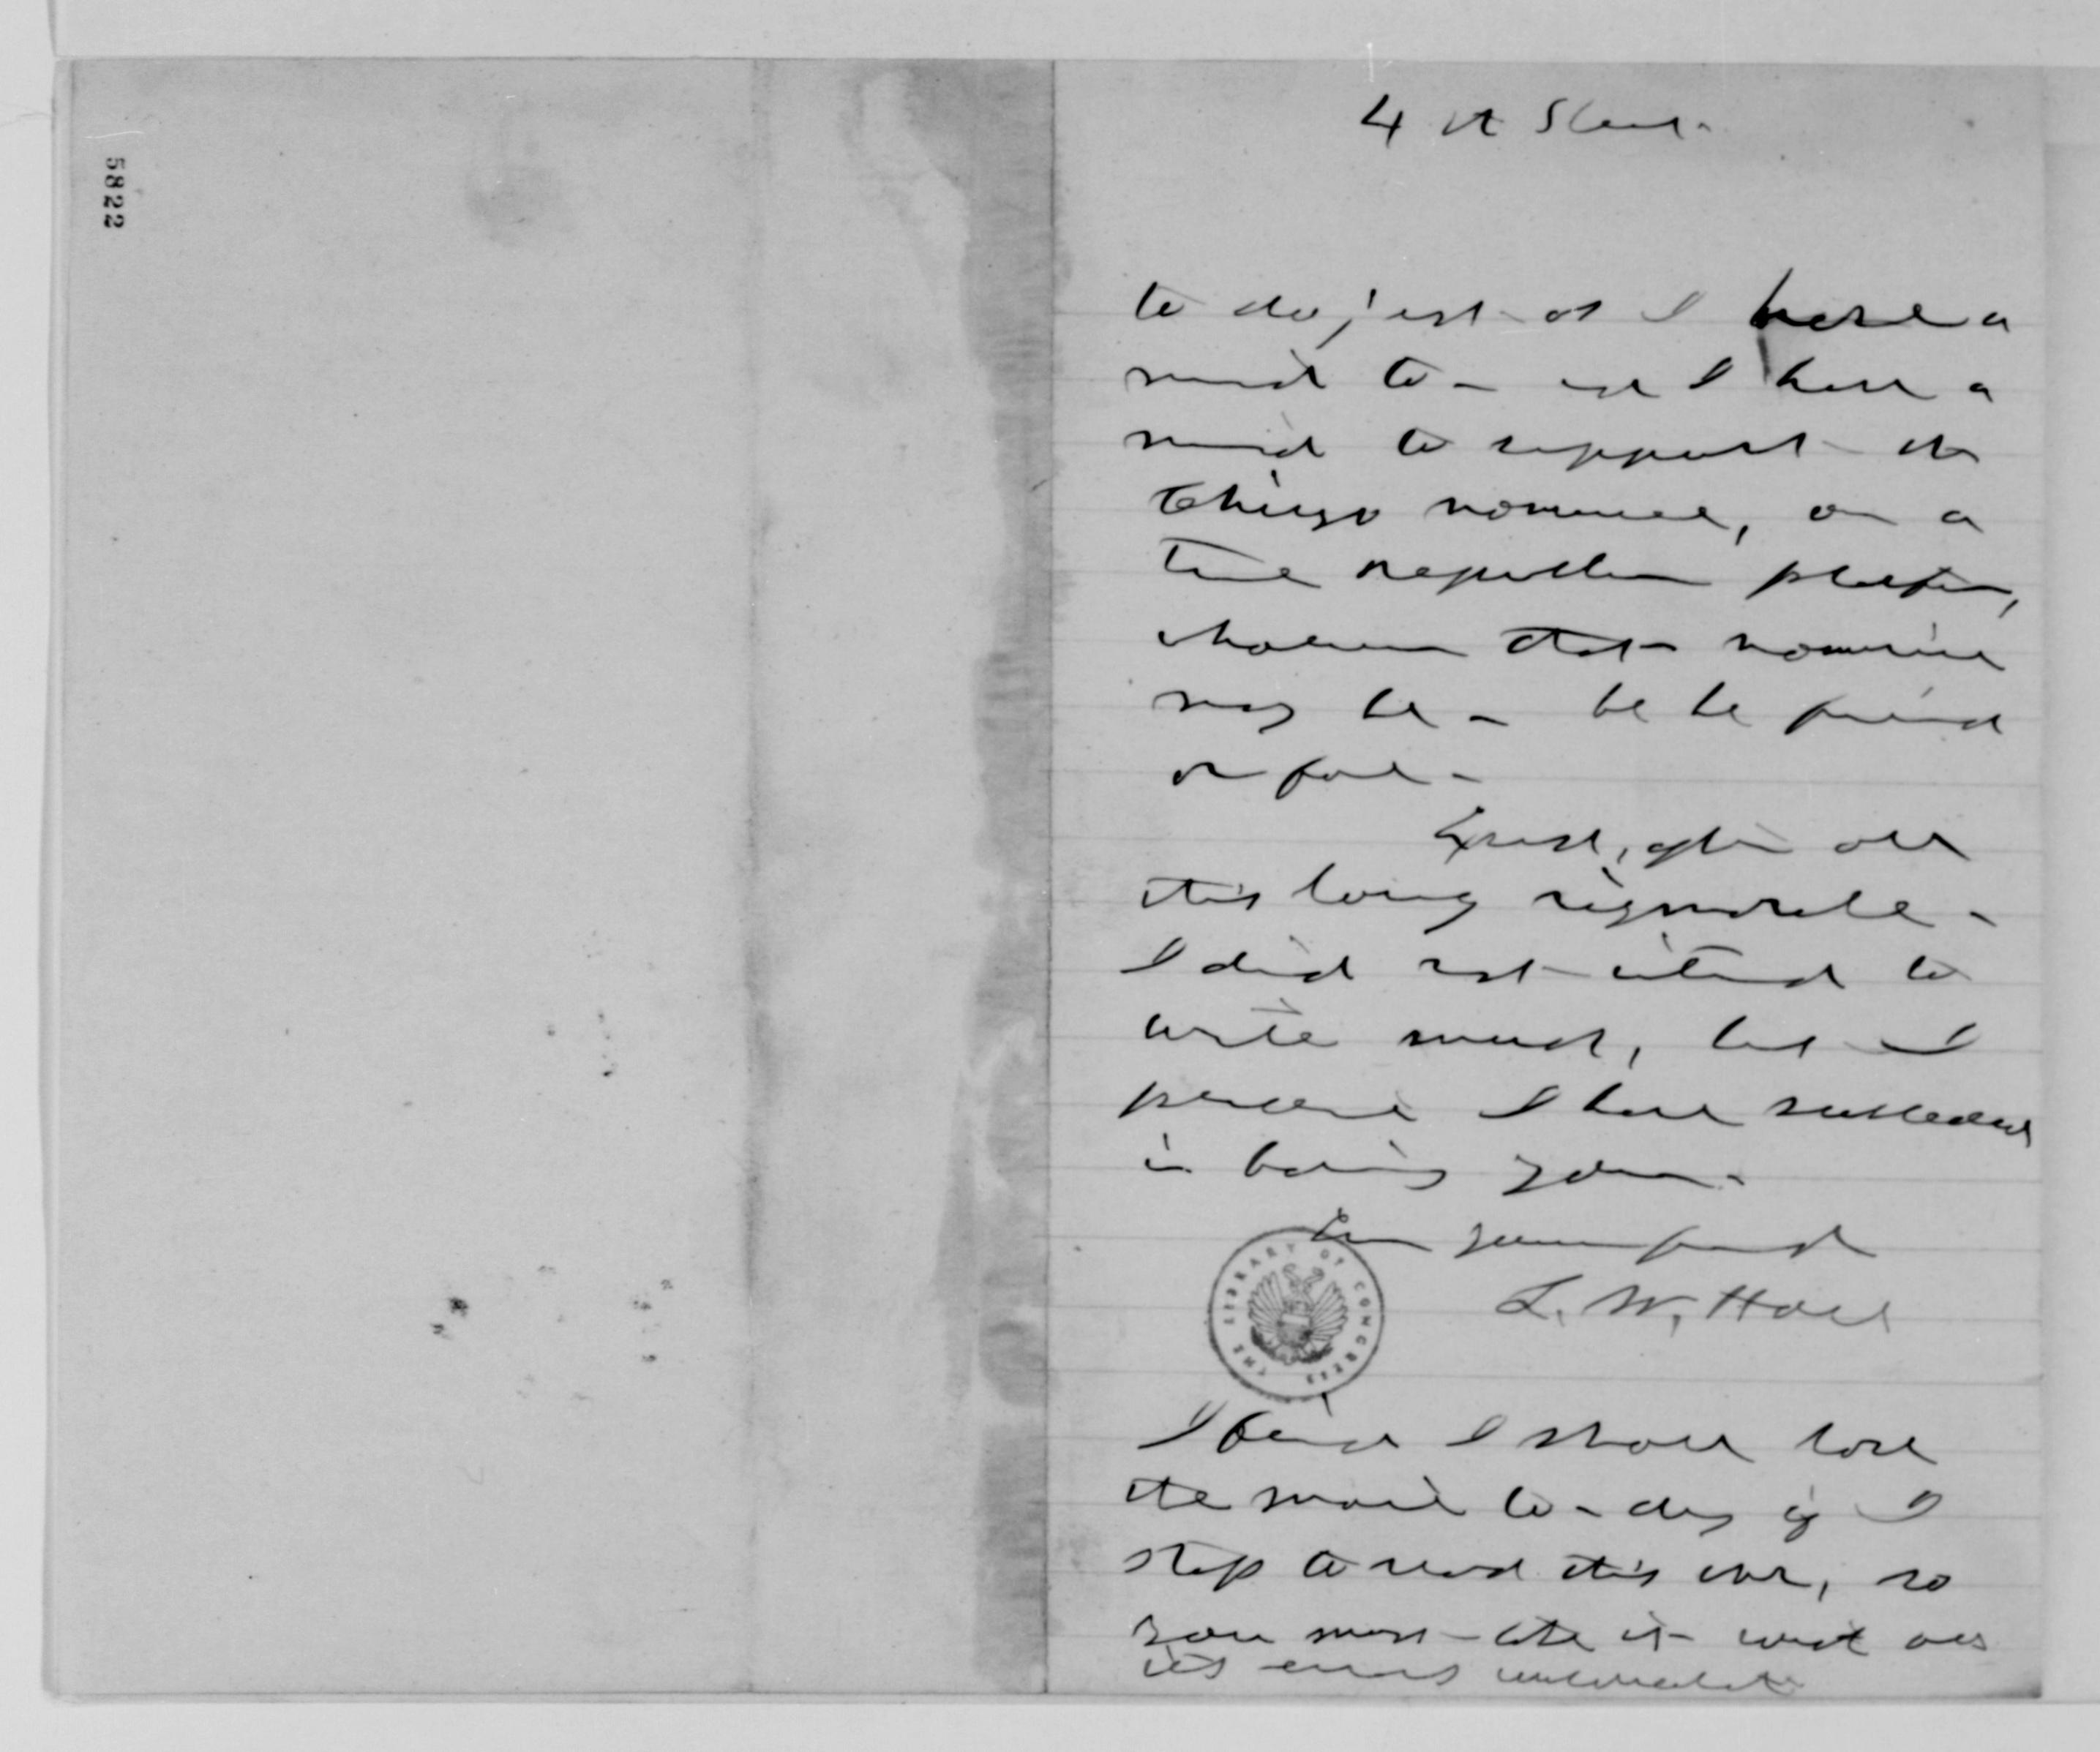 5822
4th Sheet.
to do just as I have a
mind to - and I have a
mind to support the
Chicago nominee, on a
true republican platform,
whoever that nominee
may be - be he friend
or foe -
after all
this long rigmarole -
I did not intend to
write much, but I
perceive I have succeeded
in boring you.
Ever your friend
L. W. Hall
THE LIBRARY OF CONGRESS
I find I shall lose
the mail to-day if I
stop to read this over, so
you must take it with all
its errors